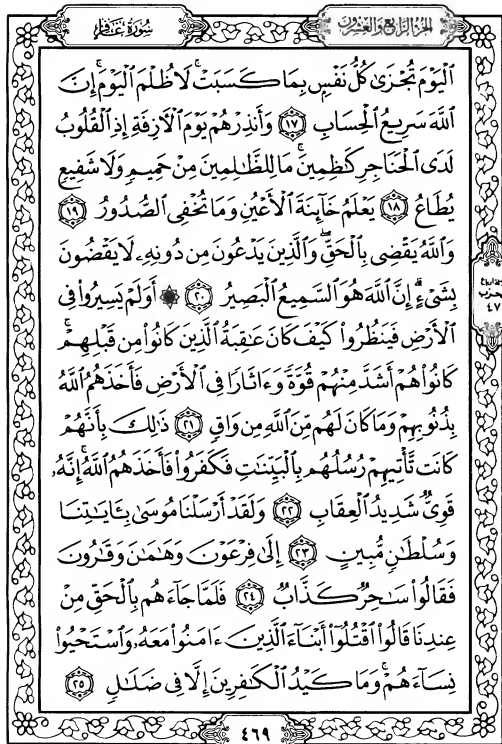 سُورَةُ غَافِرٍ
الجُزْءُ الرَّابِعُ وَالعِشْرُونَ
ٱلْيَوْمَ تُجْزَىٰ كُلُّ نَفْسِۭ بِمَا كَسَبَتْ ۚ لَا ظُلْمَ ٱلْيَوْمَ ۚ إِنَّ
ٱللَّهَ سَرِيعُ ٱلْحِسَابِ ١٧ وَأَنذِرْهُمْ يَوْمَ ٱلْءَازِفَةِ إِذِ ٱلْقُلُوبُ
لَدَى ٱلْحَنَاجِرِ كَـٰظِمِينَ ۚ مَا لِلظَّـٰلِمِينَ مِنْ حَمِيمٍ وَلَا شَفِيعٍ
يُطَاعُ ١٨ يَعْلَمُ خَآئِنَةَ ٱلْأَعْيُنِ وَمَا تُخْفِى ٱلصُّدُورُ ١٩
وَٱللَّهُ يَقْضِى بِٱلْحَقِّ ۖ وَٱلَّذِينَ يَدْعُونَ مِن دُونِهِۦ لَا يَقْضُونَ
بِشَىْءٍ ۗ إِنَّ ٱللَّهَ هُوَ ٱلسَّمِيعُ ٱلْبَصِيرُ ٢٠ ۞ أَوَلَمْ يَسِيرُوا۟ فِى
ٱلْأَرْضِ فَيَنظُرُوا۟ كَيْفَ كَانَ عَـٰقِبَةُ ٱلَّذِينَ كَانُوا۟ مِن قَبْلِهِمْ ۚ
كَانُوا۟ هُمْ أَشَدَّ مِنْهُمْ قُوَّةً وَءَاثَارًا فِى ٱلْأَرْضِ فَأَخَذَهُمُ ٱللَّهُ
بِذُنُوبِهِمْ وَمَا كَانَ لَهُم مِّنَ ٱللَّهِ مِن وَاقٍ ٢١ ذَٰلِكَ بِأَنَّهُمْ
كَانَت تَّأْتِيهِمْ رُسُلُهُم بِٱلْبَيِّنَـٰتِ فَكَفَرُوا۟ فَأَخَذَهُمُ ٱللَّهُ ۚ إِنَّهُۥ
قَوِىٌّ شَدِيدُ ٱلْعِقَابِ ٢٢ وَلَقَدْ أَرْسَلْنَا مُوسَىٰ بِـَٔايَـٰتِنَا
وَسُلْطَـٰنٍ مُّبِينٍ ٢٣ إِلَىٰ فِرْعَوْنَ وَهَـٰمَـٰنَ وَقَـٰرُونَ
فَقَالُوا۟ سَـٰحِرٌ كَذَّابٌ ٢٤ فَلَمَّا جَآءَهُم بِٱلْحَقِّ مِنْ
عِندِنَا قَالُوا۟ ٱقْتُلُوٓا۟ أَبْنَآءَ ٱلَّذِينَ ءَامَنُوا۟ مَعَهُۥ وَٱسْتَحْيُوا۟
نِسَآءَهُمْ ۚ وَمَا كَيْدُ ٱلْكَـٰفِرِينَ إِلَّا فِى ضَلَـٰلٍ ٢٥
٤٧
٤٦٩